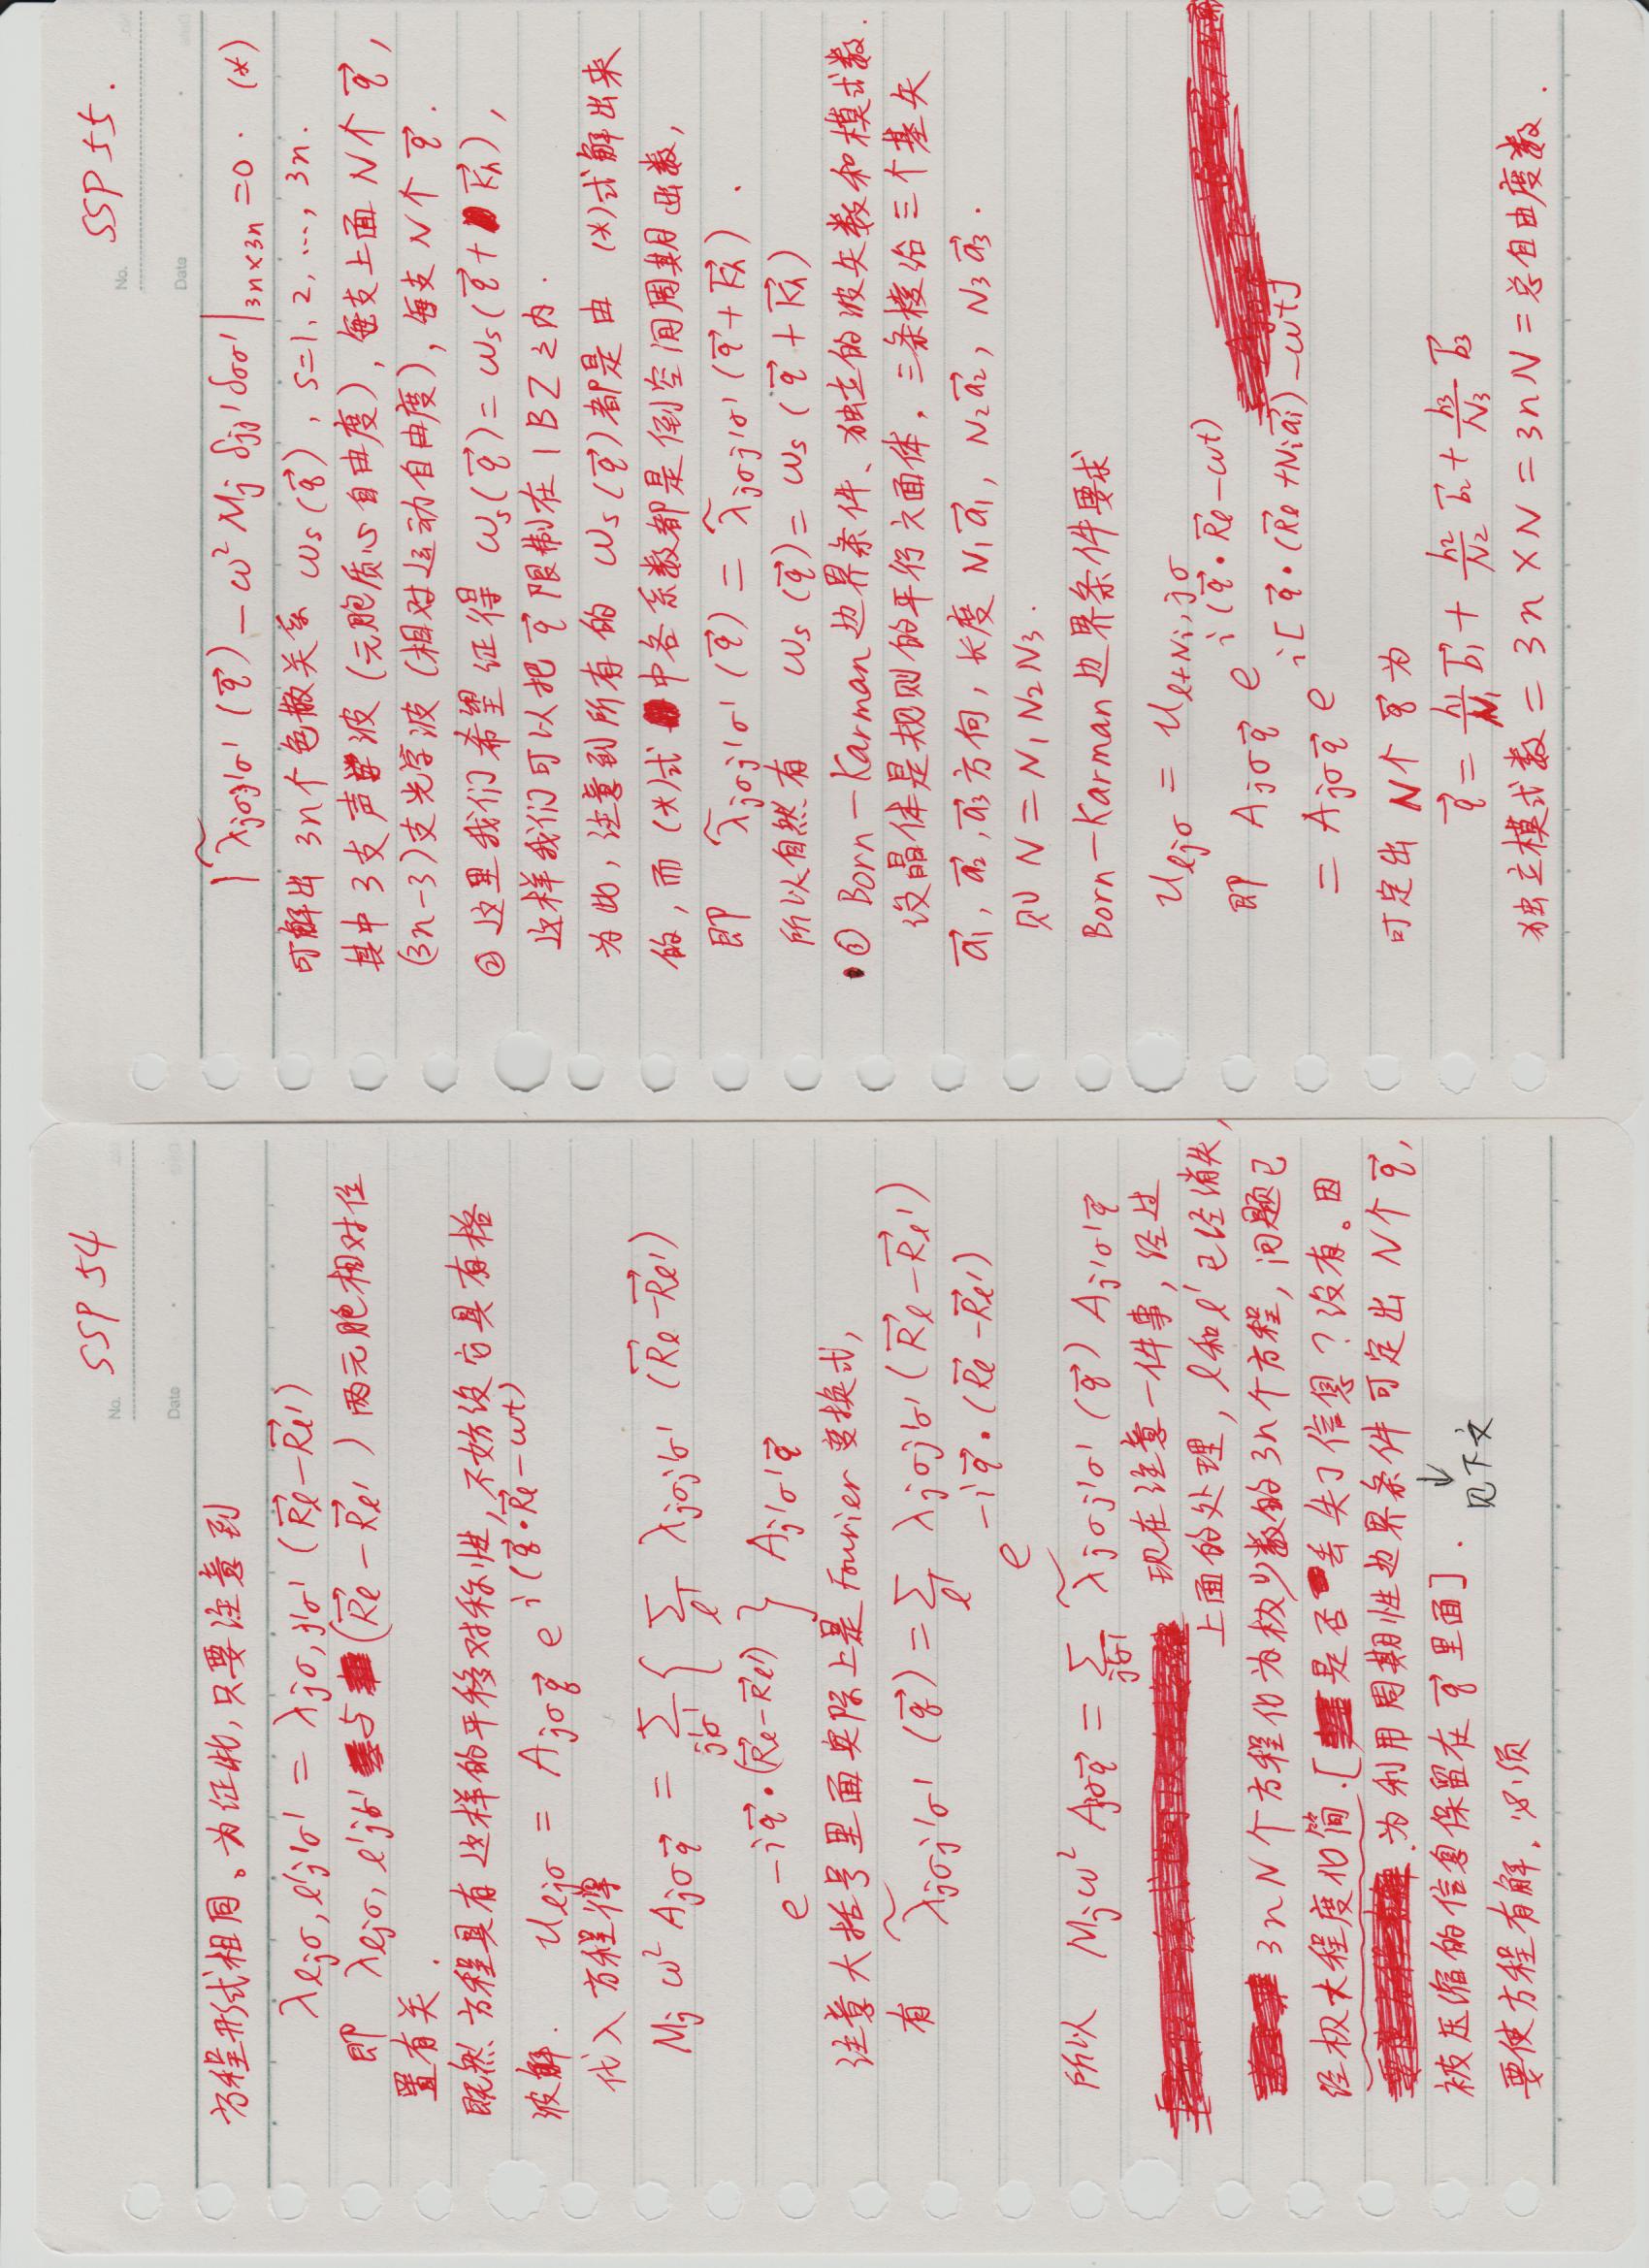 No. SSP 54
Date
方程形式相同。为证此,只要注意到
λ_{ljσ, l'j'σ'} = λ_{jσ, j'σ'} (R⃗_l − R⃗_{l'})
即 λ_{ljσ, l'j'σ'} 与 (R⃗_l − R⃗_{l'}) 两元胞相对位
置有关.
既然方程具有这样的平移对称性,不妨设它具有格
波解. u_{ljσ} = A_{jσq⃗} e^{i(q⃗·R⃗_l − ωt)}
代入方程得
M_j ω² A_{jσq⃗} = Σ_{j'σ'} { Σ_{l'} λ_{jσj'σ'} (R⃗_l − R⃗_{l'})
e^{−iq⃗·(R⃗_l − R⃗_{l'})} } A_{j'σ'q⃗}
注意大括号里面实际上是 Fourier 变换式,
有 λ̃_{jσj'σ'} (q⃗) = Σ_{l'} λ_{jσj'σ'} (R⃗_l − R⃗_{l'})
e^{−iq⃗·(R⃗_l − R⃗_{l'})}
所以 M_j ω² A_{jσq⃗} = Σ_{j'σ'} λ̃_{jσj'σ'} (q⃗) A_{j'σ'q⃗}
现在注意一件事,经过
上面的处理,l和l'已经消失,
3nN个方程化为极少数的3n个方程,问题已
经极大程度化简.[是否丢失了信息?没有。因
为利用周期性边界条件可定出 N个 q⃗,
被压缩的信息保留在 q⃗ 里面].
↓
见下文
要使方程有解.必须
No. SSP 55.
Date
|λ̃_{jσj'σ'} (q⃗) − ω² M_j δ_{jj'} δ_{σσ'}|_{3n×3n} = 0. (*)
可解出 3n个色散关系 ω_s(q⃗), s=1, 2, …, 3n.
其中3支声学波(元胞质心自由度),每支上面 N个 q⃗,
(3n−3)支光学波(相对运动自由度),每支 N个 q⃗.
② 这里我们希望证得 ω_s(q⃗) = ω_s(q⃗ + K⃗_h),
这样我们可以把 q⃗ 限制在 1BZ 之内.
为此,注意到所有的 ω_s(q⃗) 都是由 (*)式解出来
的,而(*)式中各系数都是倒空间周期函数,
即 λ̃_{jσj'σ'} (q⃗) = λ̃_{jσj'σ'} (q⃗ + K⃗_h).
所以自然有 ω_s(q⃗) = ω_s(q⃗ + K⃗_h)
③ Born−Karman 边界条件、独立的波矢数和模式数.
设晶体是规则的平行六面体,三条棱沿三个基矢
a⃗₁, a⃗₂, a⃗₃方向,长度 N₁a⃗₁, N₂a⃗₂, N₃a⃗₃.
则 N = N₁N₂N₃.
Born−Karman 边界条件要求
u_{ljσ} = u_{l+N_i, jσ}
即 A_{jσq⃗} e^{i(q⃗·R⃗_l − ωt)}
= A_{jσq⃗} e^{i[q⃗·(R⃗_l + N_i a⃗_i) − ωt]}
可定出 N个 q⃗ 为
q⃗ = h₁/N₁ b⃗₁ + h₂/N₂ b⃗₂ + h₃/N₃ b⃗₃
独立模式数 = 3n × N = 3nN = 总自由度数.